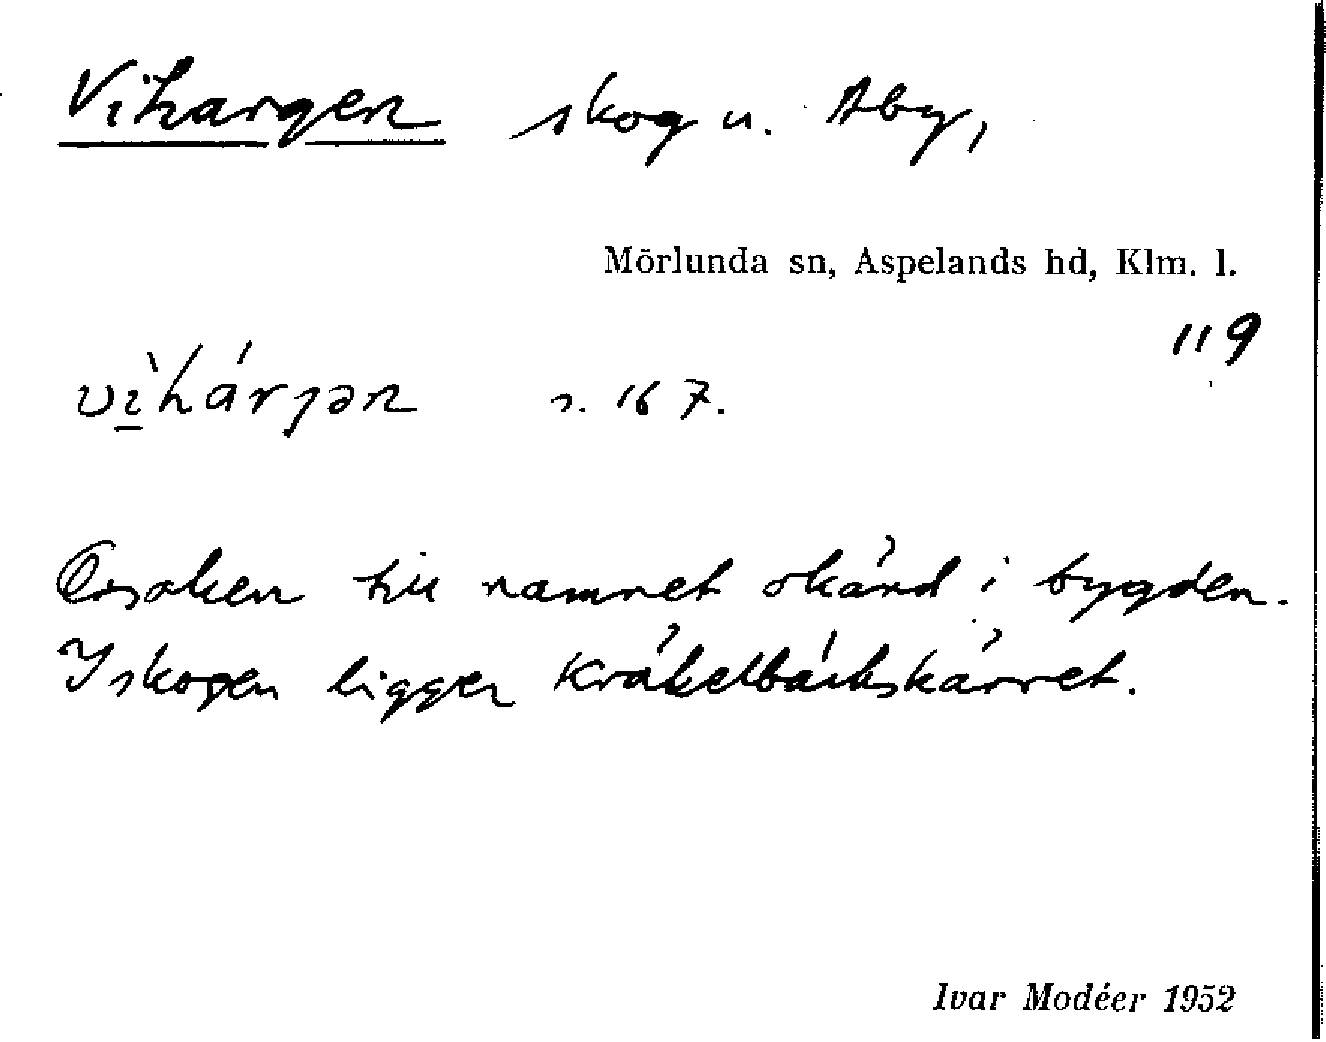 Vihargen skog u. Åby,
Mörlunda sn, Aspelands hd, Klm. l.
119
vì̱hárjən s. 167.
Orsaken till namnet okänd i bygden.
I skogen ligger Kråkelbäckskärret.
Ivar Modéer 1952